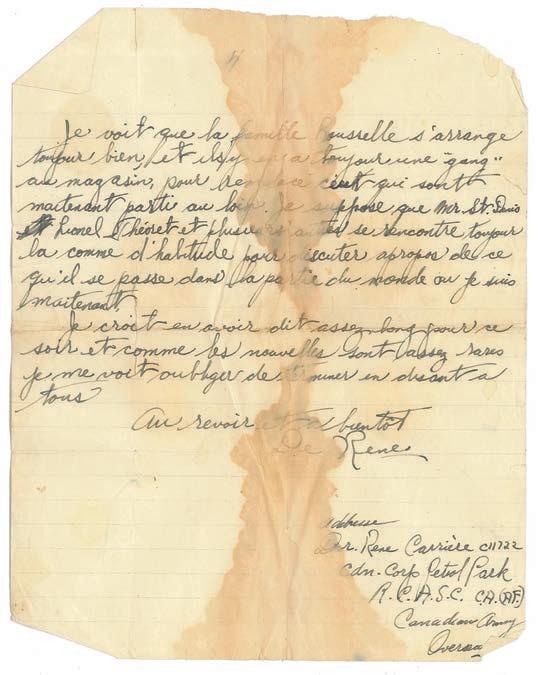 4
Je voit que la famille Rousselle s'arrange
toujour bien, et ils y en a toujour une "gang"
au magasin, pour remplace ceux qui sont
maitenant parti au loin. Je suppose que Mr. St. Denis
et Lionel Théoret et plusieurs autres se rencontre toujour
la comme d'habitude pour discuter apropos de ce
qu'il se passe dans la partie du monde ou je suis
maitenant.
Je croit en avoir dit assez long pour ce
soir et comme les nouvelles sont assez rares
je me voit oubliger de terminer en disant a
tous
Au revoir et a bientôt
De Rene
addresse
Rene Carrière C11722
Cdn. Corp Petrol Park
R.C.A.S.C. C.A.(A.F.)
Canadian Army
Overseas